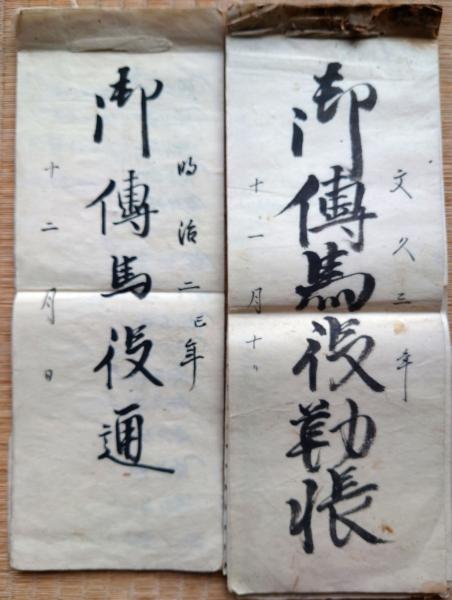 文久三年
御傳馬役勤帳
十一月十
明治二巳年
御傳馬役通
十二月日